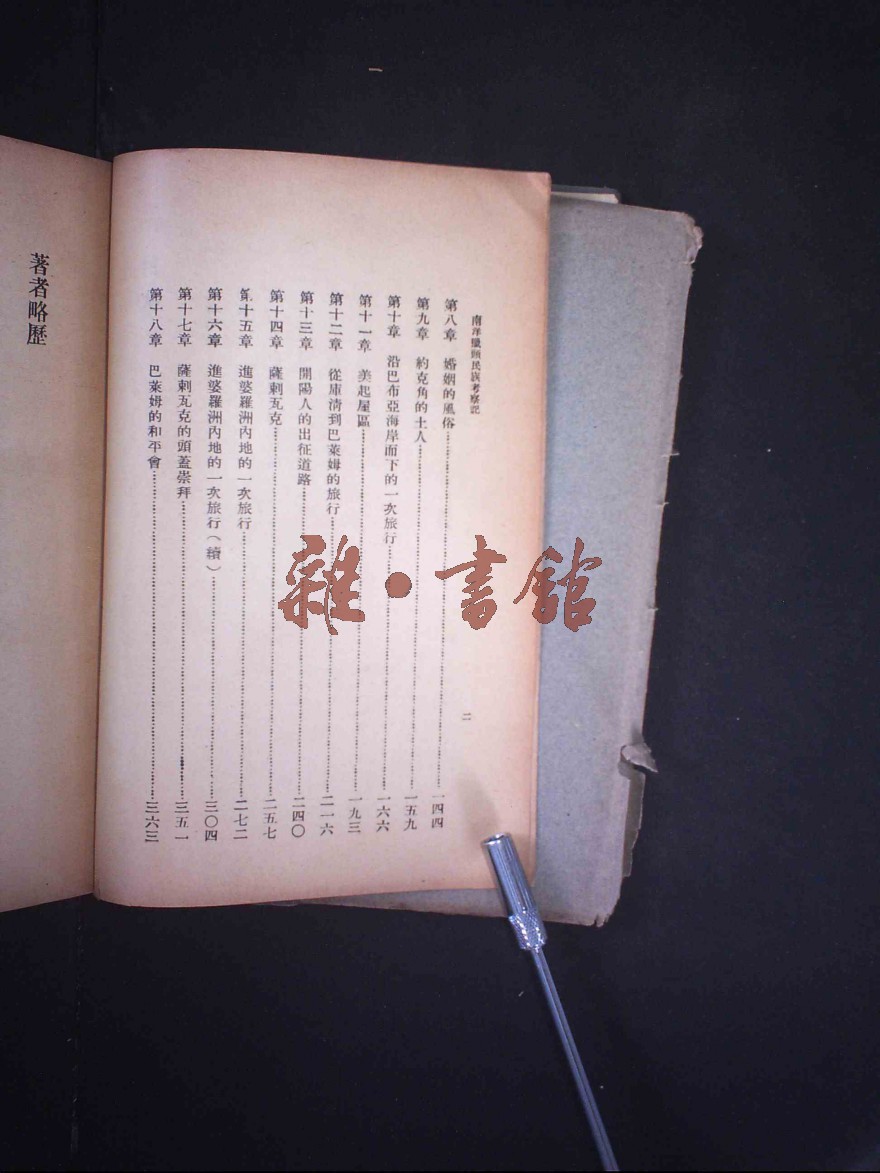 南洋獵頭民族考察記
二
第八章 婚姻的風俗……一四四
第九章 約克角的土人……一五九
第十章 沿巴布亞海岸而下的一次旅行……一六六
第十一章 美起屋區……一九三
第十二章 從庫淸到巴萊姆的旅行……二一六
第十三章 開陽人的出征道路……二四〇
第十四章 薩剌瓦克……二五七
第十五章 進婆羅洲內地的一次旅行……二七二
第十六章 進婆羅洲內地的一次旅行（續）……三〇四
第十七章 薩剌瓦克的頭蓋崇拜……三五一
第十八章 巴萊姆的和平會……三六三
著者略歷
雜·書館